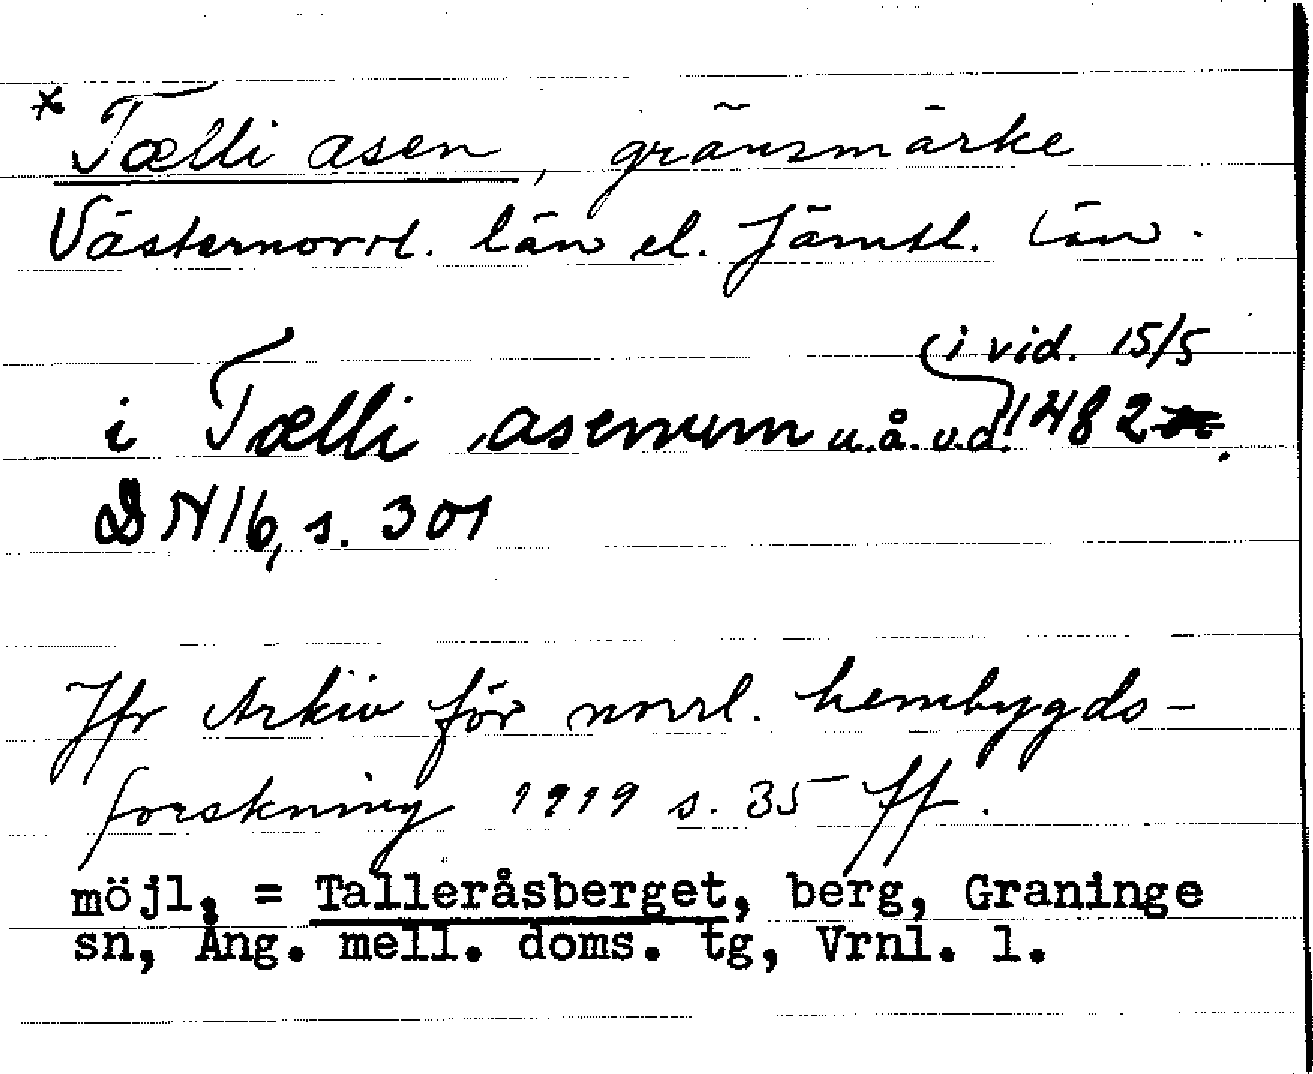 * Tælli asen, gränsmärke
Västernorrl. län el. Jämtl. län.
i vid. 15/5
i Tælli asenum u.å. u.d. 1482
DN 16, s. 301
Jfr Arkiv för norrl. hembygds-
forskning 1919 s. 35 ff.
möjl. = Talleråsberget, berg, Graninge
sn, Ång. mell. doms. tg, Vrnl. l.